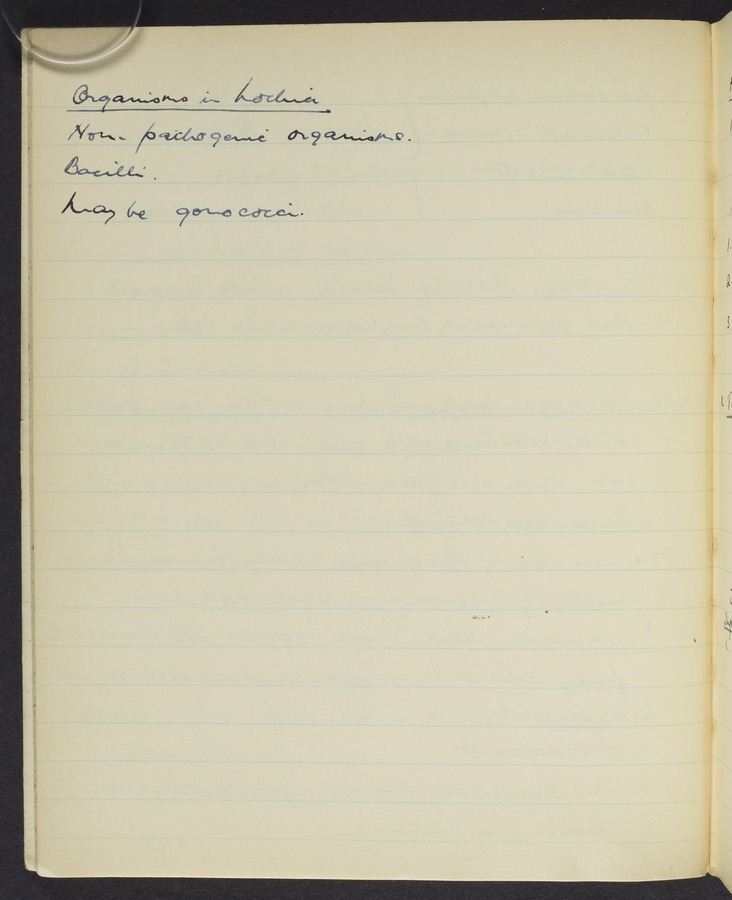 Organisms in Lochia
Non-pathogenic organisms.
Bacilli.
May be gonococci.